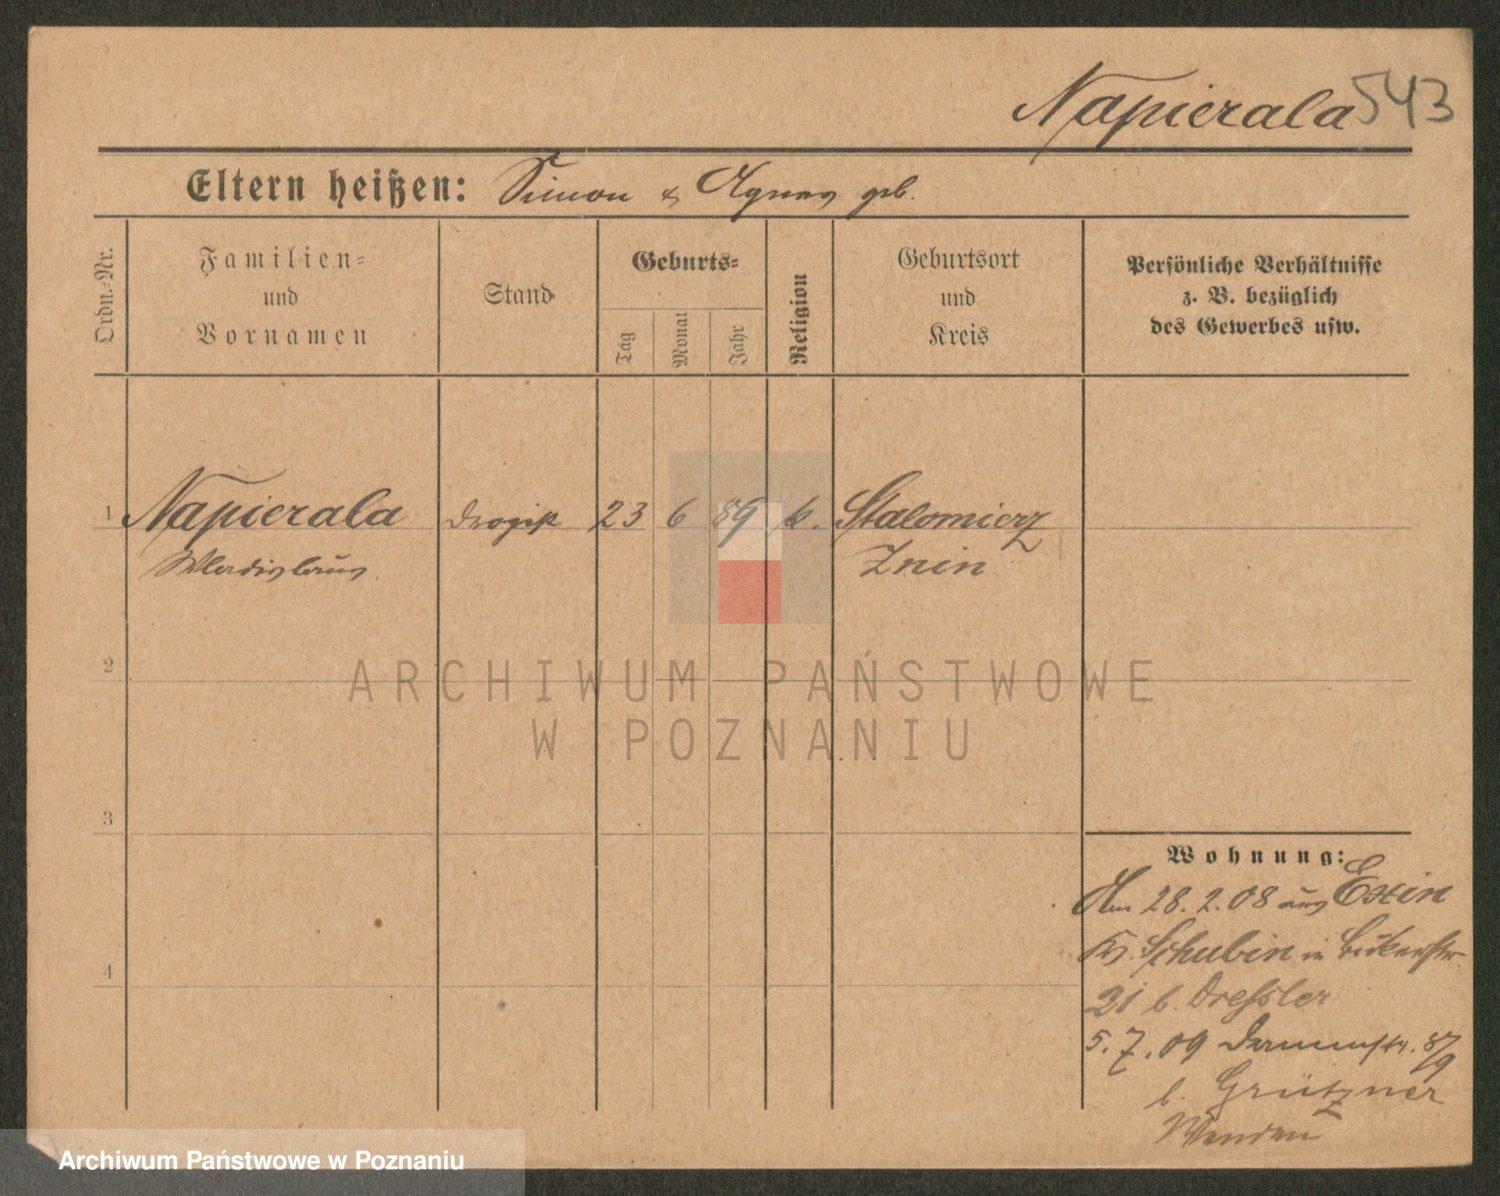 Napierala 543
Eltern heißen: Simon & Agnes geb.
Ordn.-Nr.
Familien-
und
Vornamen
Stand
Geburts-
Tag
Monat
Jahr
Religion
Geburtsort
und
Kreis
Persönliche Verhältnisse
z. B. bezüglich
des Gewerbes usw.
1 Napierala Drogist 23 6 89 k. Stalomierz
Wladislaus Znin
2
ARCHIWUM PAŃSTWOWE
W POZNANIU
3
Wohnung:
Am 28.2.08 aus Exin
Kr. Schubin in Bäckerstr.
21 b. Dressler
5.7.09 87/9
b. Grützner
Wenden
4
Archiwum Państwowe w Poznaniu